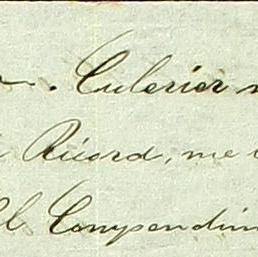 . Culerier
Ricord, me
El Compendium